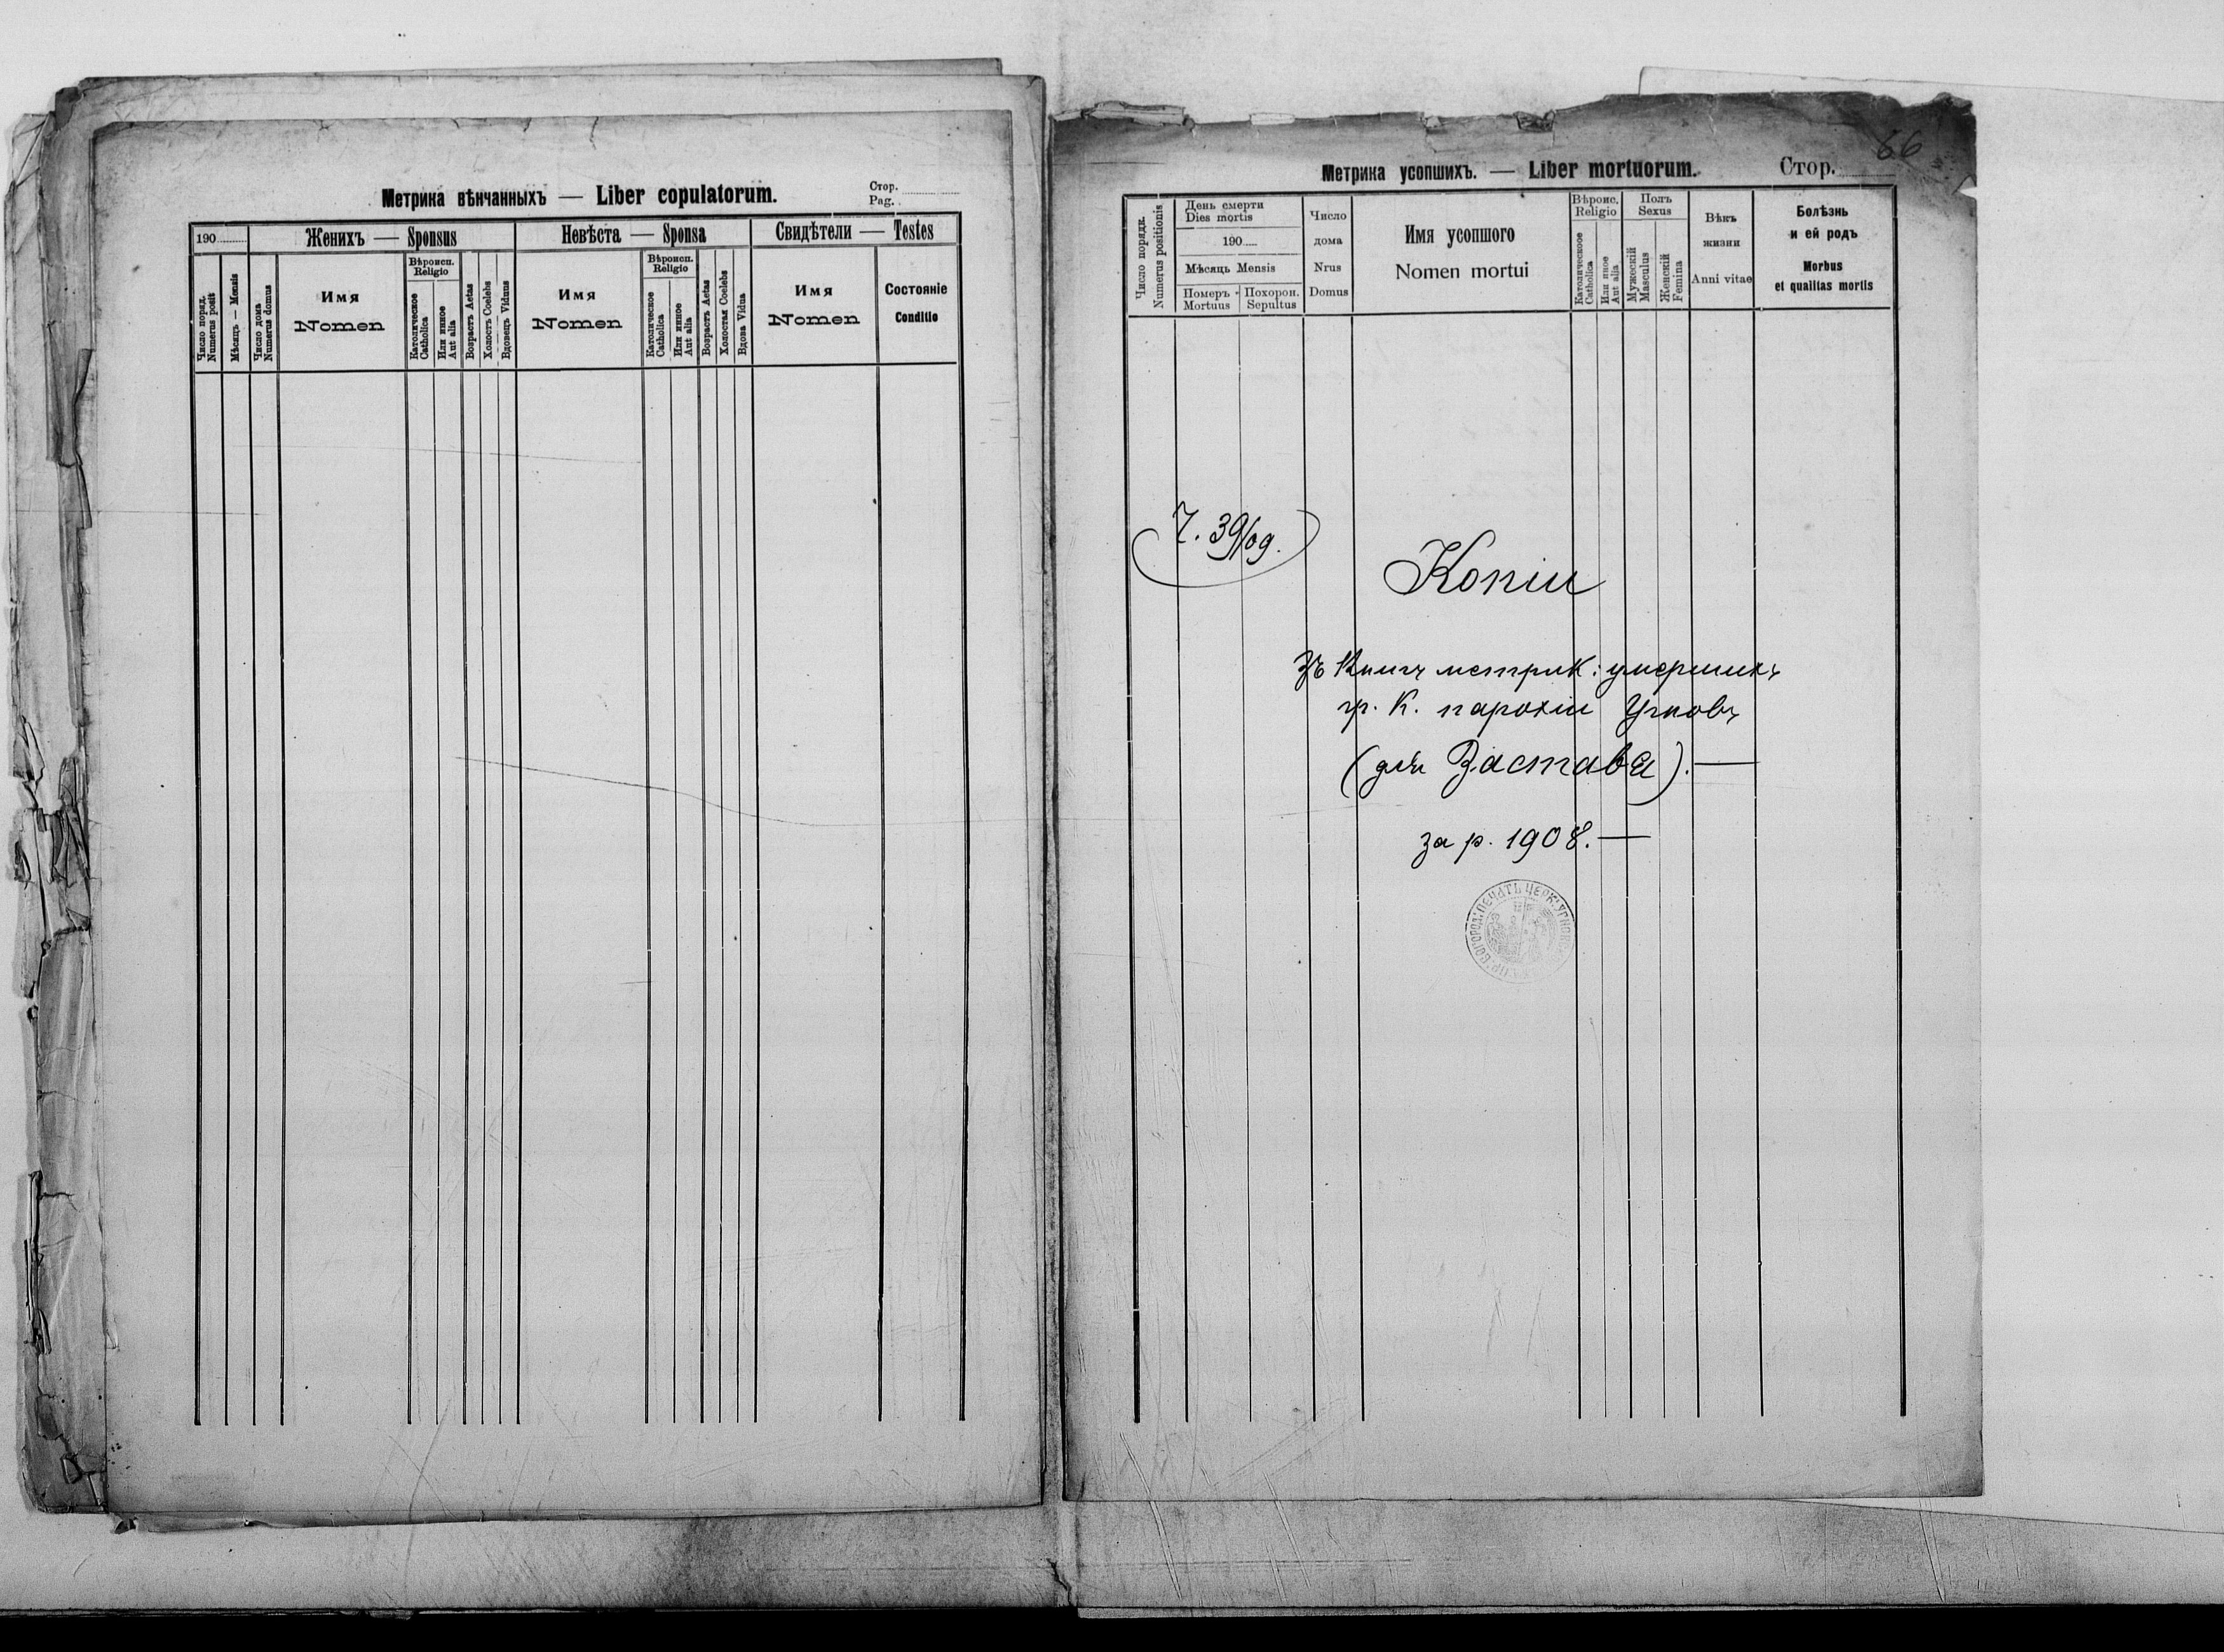 Метрика вѣнчанныхъ — Liber copulatorum.
Стор.
Pag.
190
Женихъ — Sponsus
Невѣста — Sponsa
Свидѣтели — Testes
Число поряд.
Numerus posit
Мѣсяць — Mensis
Число дома
Numerus domus
Имя
Nomen
Вѣроисп.
Religio
Католическое
Catholica
Или инное
Aut alia
Возрастъ Aetas
Холостъ Coelebs
Вдовець Viduus
Имя
Nomen
Вѣроисп.
Religio
Католическое
Catholica
Или инное
Aut alia
Возрастъ Aetas
Холостая Coelebs
Вдова Vidua
Имя
Nomen
Состояніе
Conditio
66
Метрика усопшихъ. — Liber mortuorum.
Стор.
Число порядк.
Numerus positionis
День смерти
Dies mortis
190
Мѣсяць Mensis
Померъ
Mortuus
Похорон.
Sepultus
Число
дома
Nrus
Domus
Имя усопшого
Nomen mortui
Вѣроис.
Religio
Католическое
Catholica
Или иное
Aut alia
Полъ
Sexus
Мужескій
Masculus
Женскій
Femina
Вѣкъ
жизни
Anni vitae
Болѣзнь
и ей родъ
Morbus
et qualitas mortis
7. 39/09.
Копіи
зъ Книгъ метрик: умершихъ
гр. К. парохіи Угновъ
(для Заставя). —
за р. 1908. —
ПЕЧАТЬ ЦЕРК. УГНОВ
БОГОРОД.